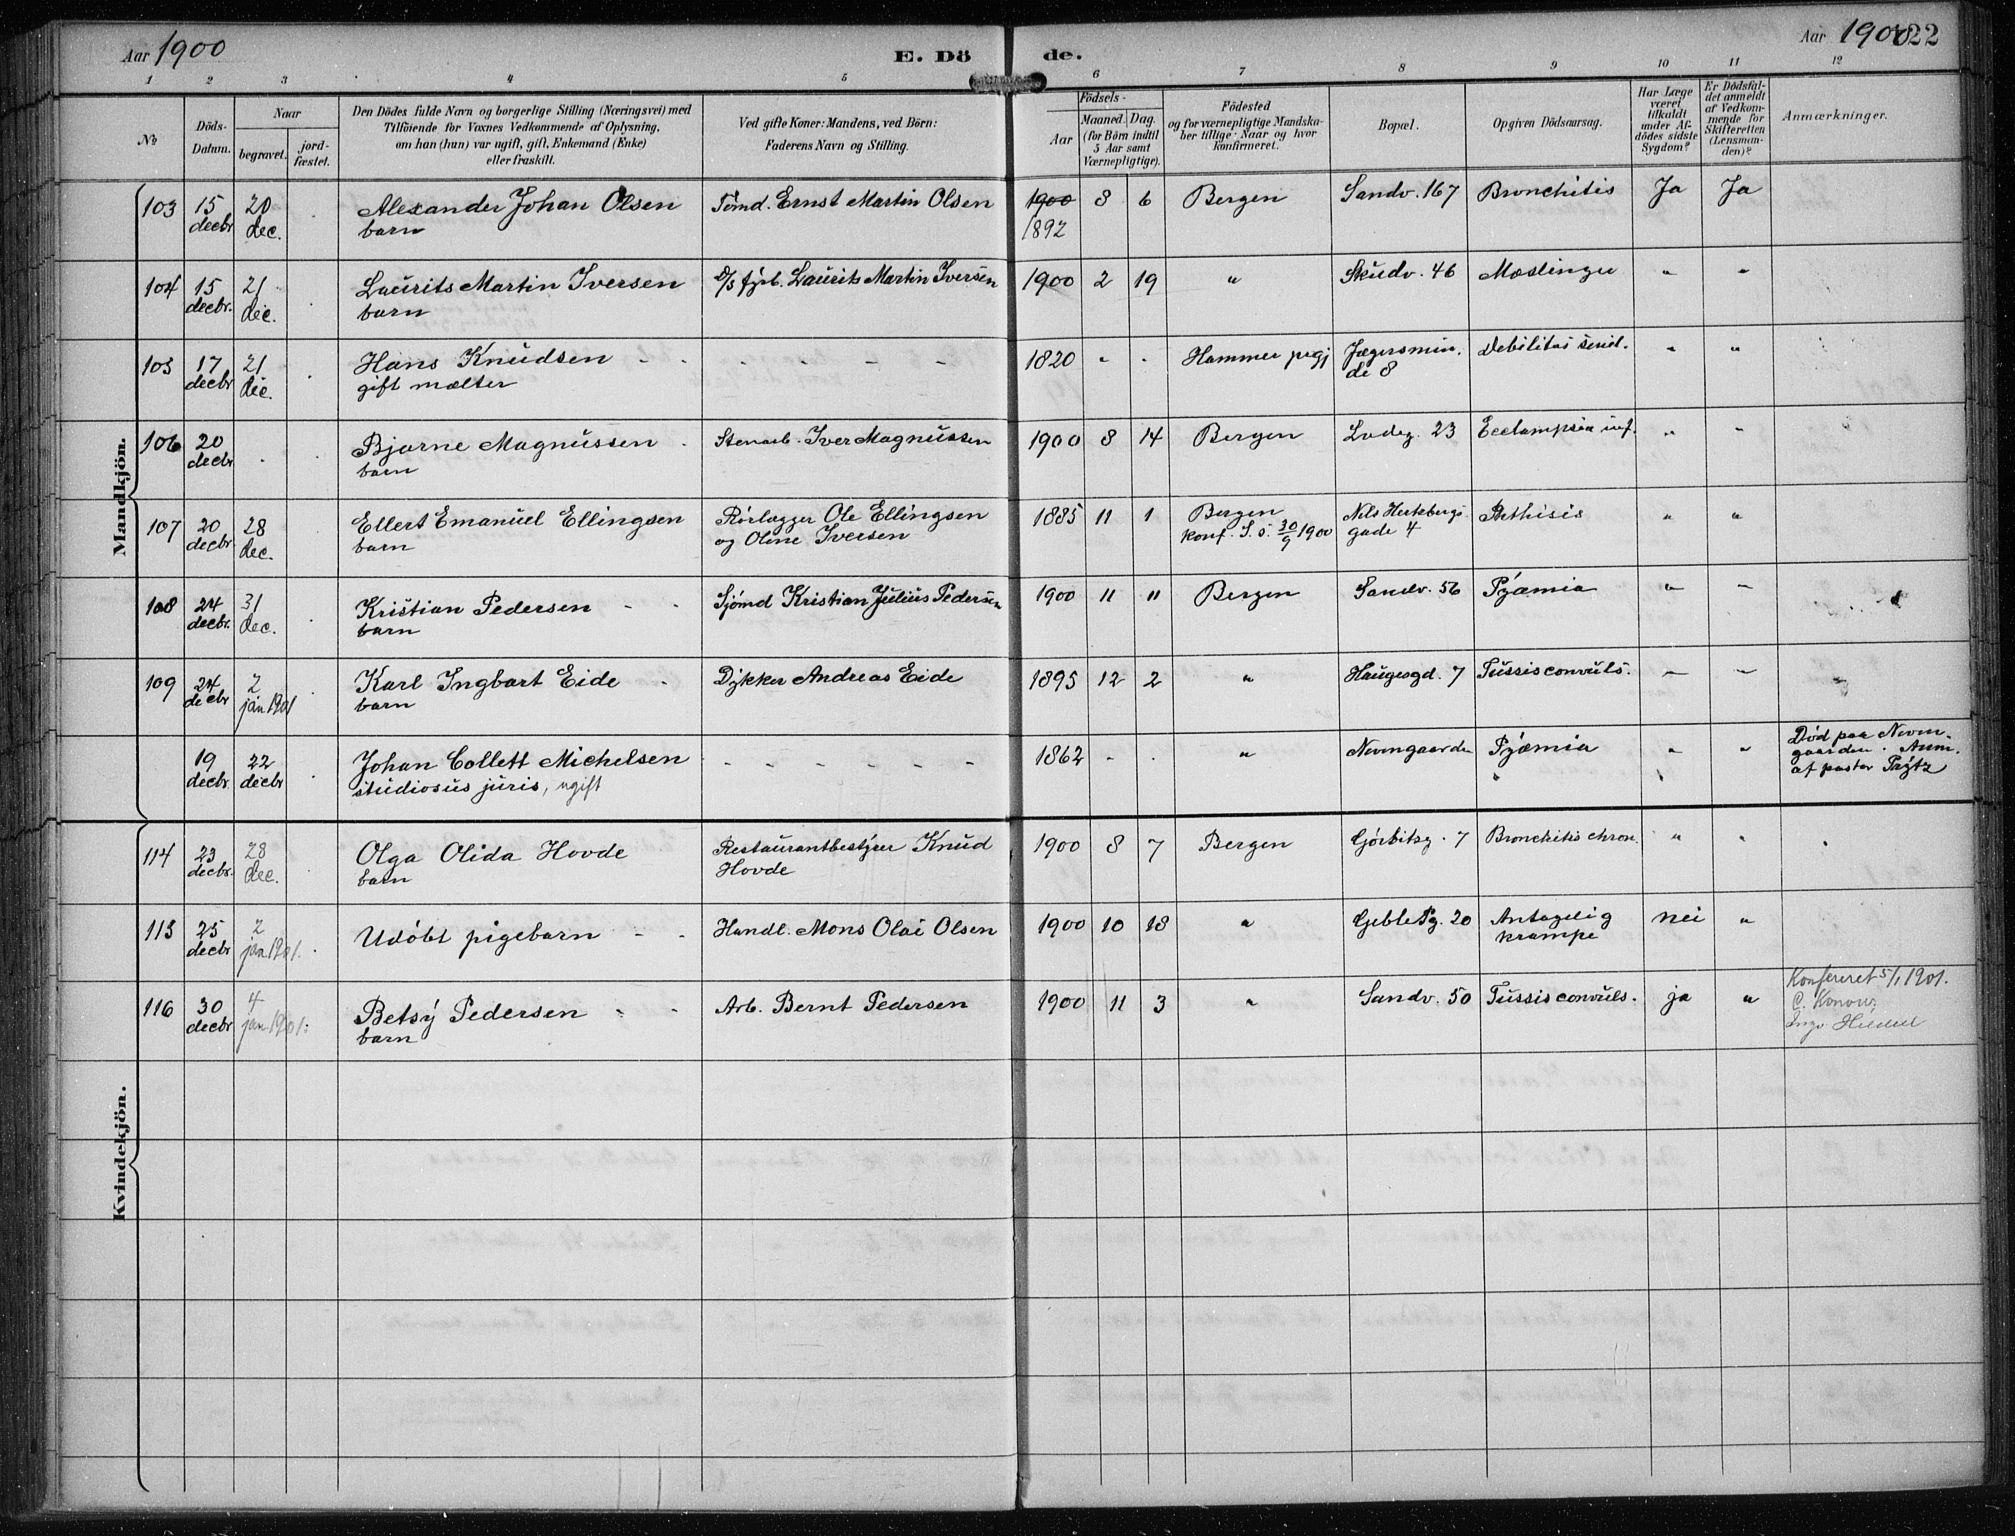 Aar 1900
E. Dö
de.
Aar 1900
122
1 2 3 4 5 6 7 8 9 10 11 12
No
Döds-Datum.
Naar
begravet.
jord-fæstet.
Den Dödes fulde Navn og borgerlige Stilling (Næringsvei) med
Tilföiende for Voxnes Vedkommende af Oplysning,
om han (hun) var ugift, gift, Enkemand (Enke)
eller fraskilt.
Ved gifte Koner: Mandens, ved Börn:
Faderens Navn og Stilling.
Födsels-
Aar
Maaned. Dag.
(for Börn indtil
5 Aar samt
Værnepligtige).
Födested
og for værnepligtige Mandska-
ber tillige: Naar og hvor
konfirmeret.
Bopæl.
Opgiven Dödsaarsag.
Har Læge
været
tilkaldt
under Af-
dödes sidste
Sygdom?
Er Dödsfal-
det anmeldt
af Vedkom-
mende for
Skifteretten
(Lensman-
den)?
Anmærkninger.
Mandkjön.
103 15 decbr 20 dec. Alexander Johan Olsen Tömd. Ernst Martin Olsen 1900 8 6 Bergen Sandv. 167 Bronchitis Ja Ja
barn 1892
104 15 decbr. 21 dec. Laurits Martin Iversen D/s fyrb. Laurits Martin Iversen 1900 2 19 " Skudv. 46 Mæslinger " "
barn
105 17 decbr 21 dec. Hans Knudsen - - - - - - - 1820 - - Hammer prgj Jægersmin. Debilitas senil. " "
gift mælter de 8
106 20 decbr . Bjarne Magnussen - Stenarb. Iver Magnussen 1900 8 14 Bergen Ladeg. 23 Eclampsia inf. " "
barn
107 20 decbr. 28 dec. Ellert Emanuel Ellingsen Rörlægger Ole Ellingsen 1885 11 1 Bergen Nils Hertzbergs Phthisis " "
barn og Oline Iversen konf. S. S. 30/9 1900 gade 4
108 24 decbr. 31 dec. Kristian Pedersen - - Sjömd Kristian Julius Pedersen 1900 11 11 Bergen Sandv. 56 Pyæmia " -
barn
109 24 decbr 2 jan 1901 Karl Ingbart Eide - Dykker Andreas Eide 1895 12 2 " Haugesgd. 7 Tussis convuls. - -
barn
19 decbr. 22 decbr Johan Collett Michelsen - - - - - - 1862 - - " Nevengaarden Pyæmia " " Död paa Neven-
studiosus juris, ugift gaarden. Anm.
af pastor Prytz
Kvindekjön.
114 23 decbr. 28 dec. Olga Olida Hovde Restaurantbestyrer Knud 1900 8 7 Bergen Gjörbitsg. 7 Bronchitis chron. " "
barn Hovde
115 25 decbr 2 jan 1901. Udöbt pigebarn - - Handl. Mons Olai Olsen 1900 10 18 " Geble Pg. 20 Antagelig nei "
krampe
116 30 decbr 4 jan 1901. Betsy Pedersen - - Arb. Bernt Pedersen 1900 11 3 " Sandv. 50 Tussis convuls. ja " Konfereret 5/1 1901.
barn C. Konow.